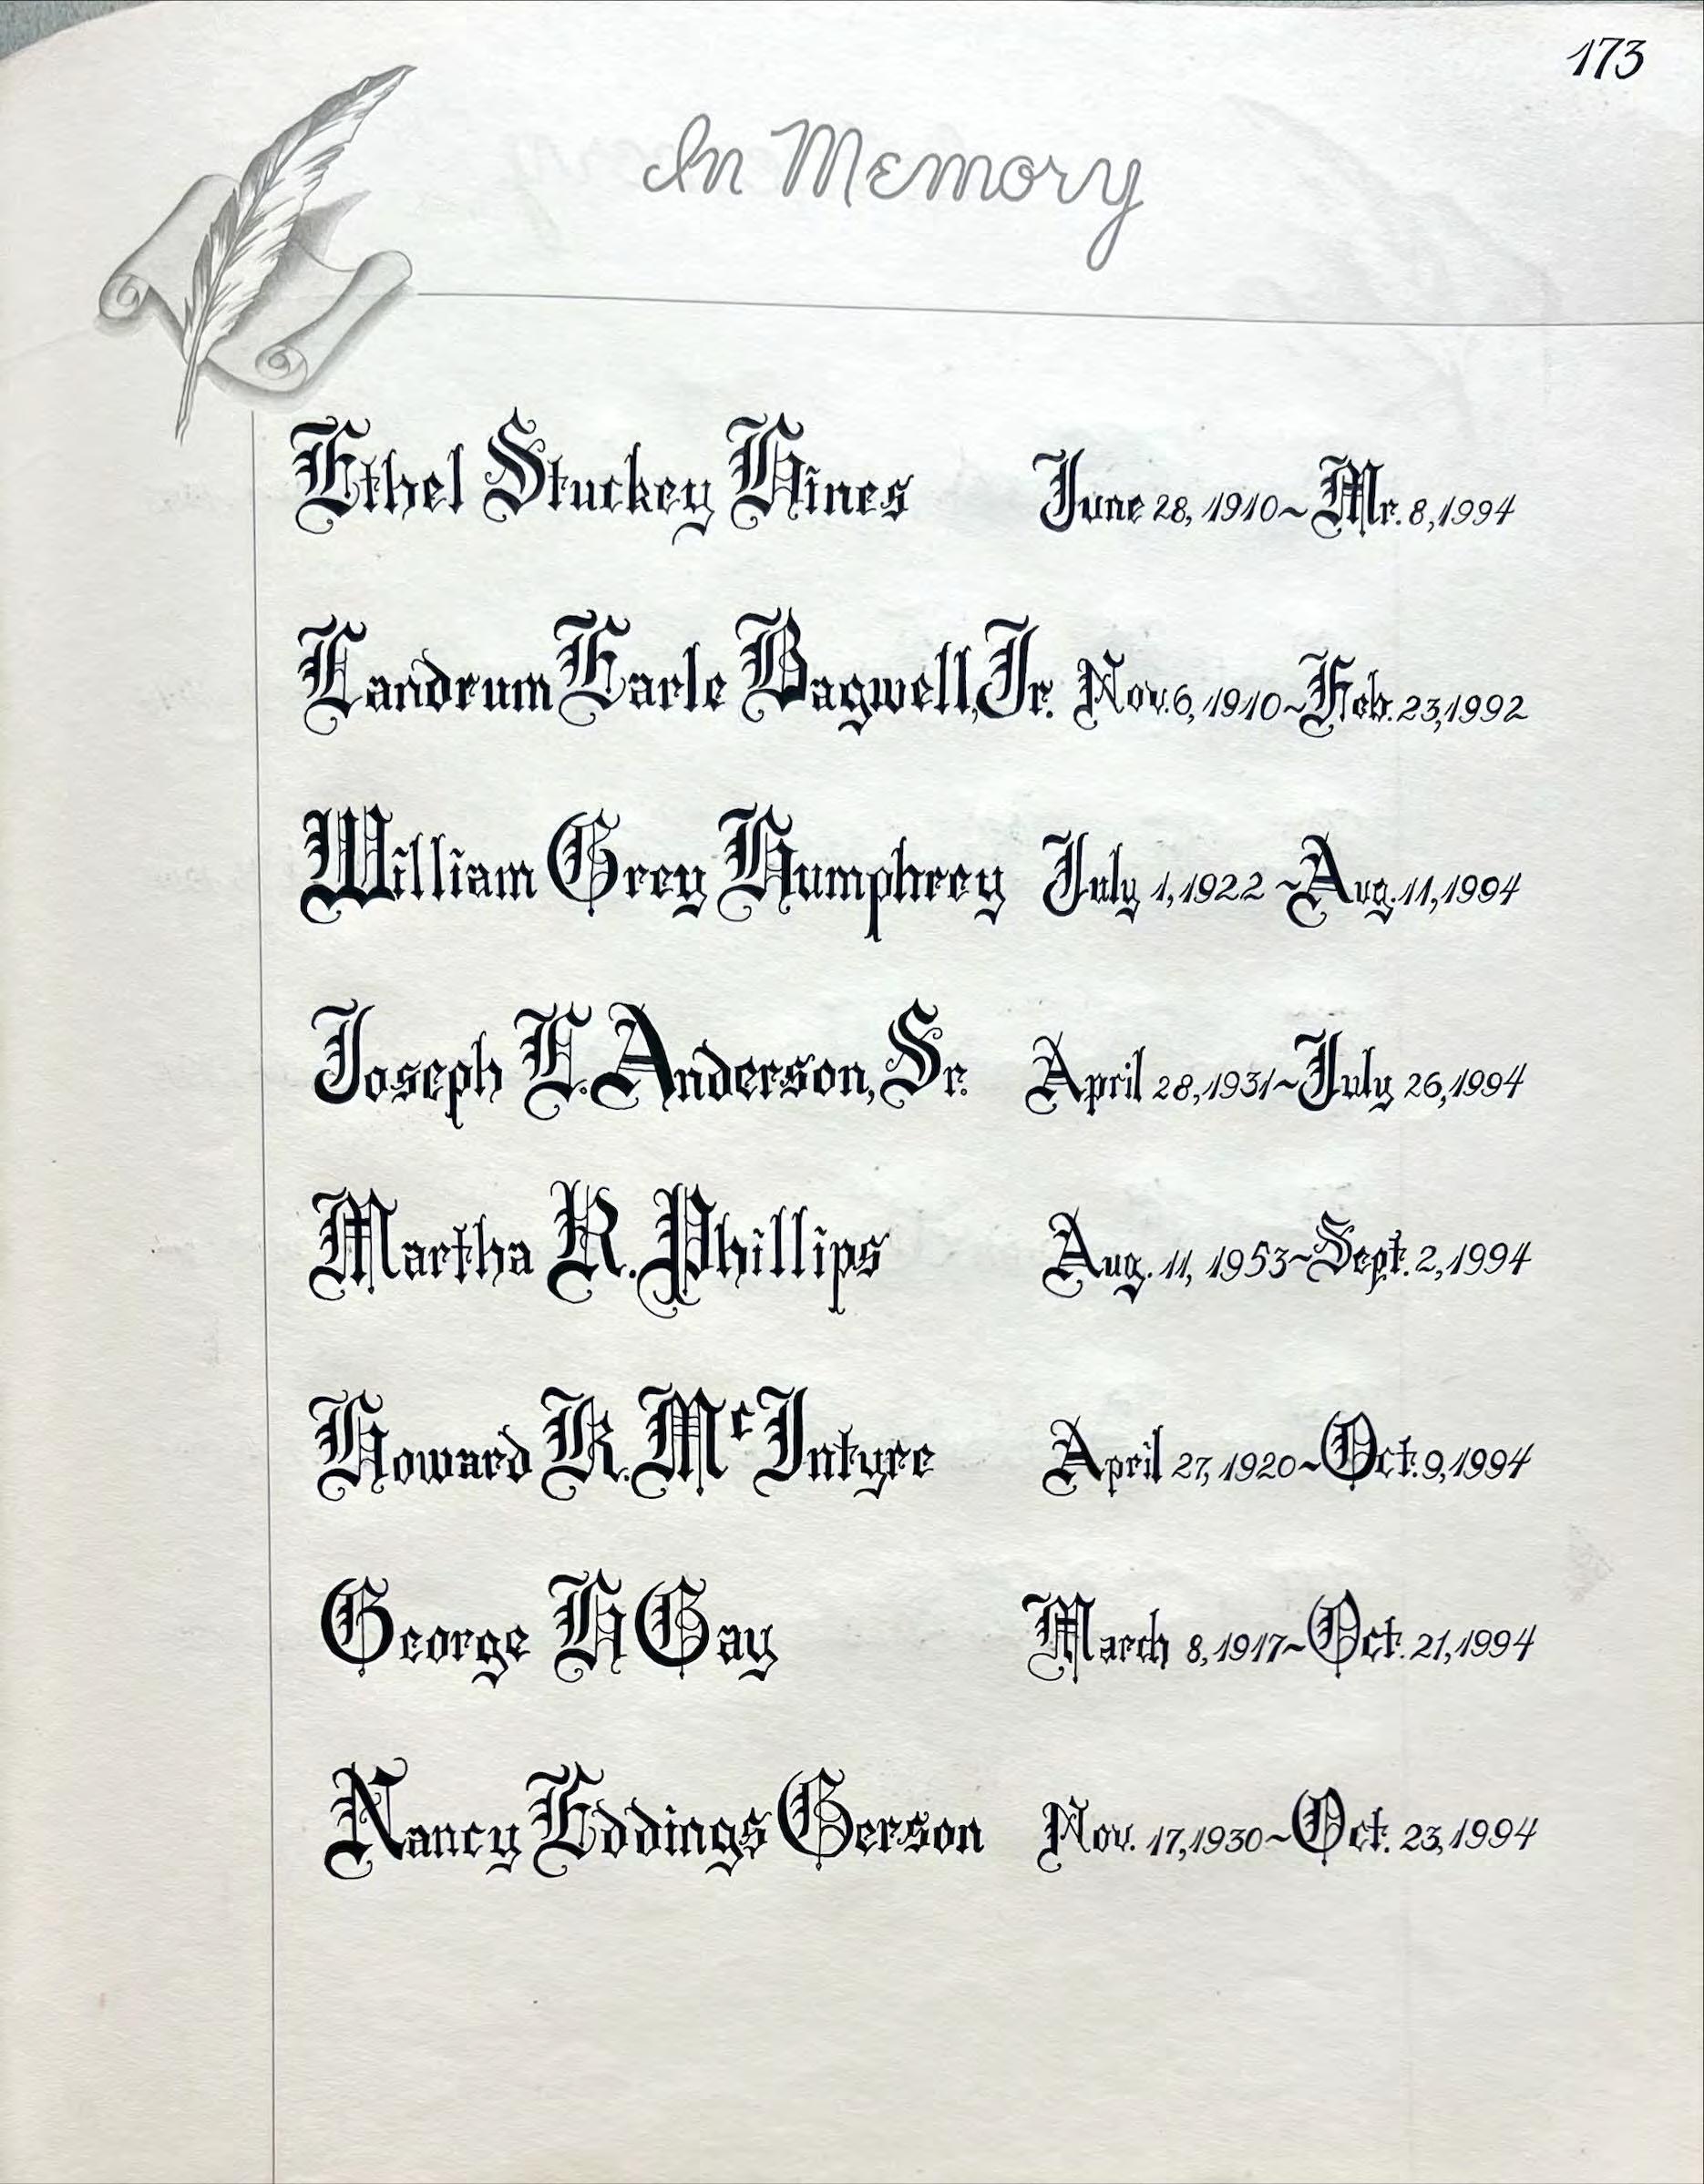 173
In Memory
Ethel Stuckey Hines June 28, 1910~Mr. 8, 1994
Landrum Earle Bagwell, Jr. Nov. 6, 1910~Feb. 23, 1992
William Grey Humphrey July 1, 1922~Aug. 11, 1994
Joseph E. Anderson, Sr. April 28, 1931~July 26, 1994
Martha R. Phillips Aug. 11, 1953~Sept. 2, 1994
Howard K. McIntyre April 27, 1920~Oct. 9, 1994
George H Gay March 8, 1917~Oct. 21, 1994
Nancy Eddings Gerson Nov. 17, 1930~Oct. 23, 1994